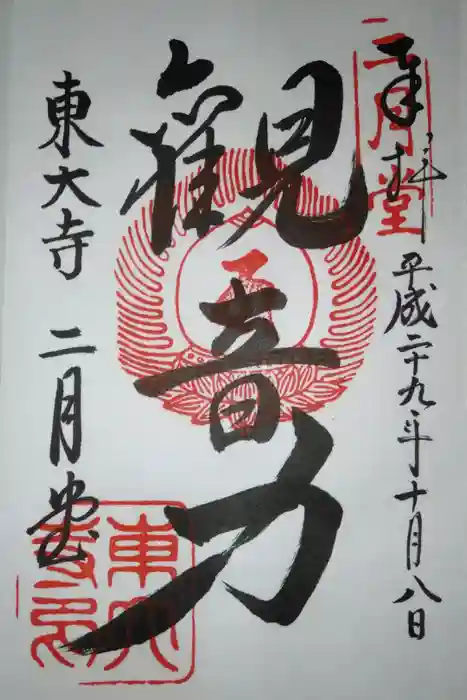 奉拝
平成二十九年十月八日
観音力
東大寺 二月堂
二月堂